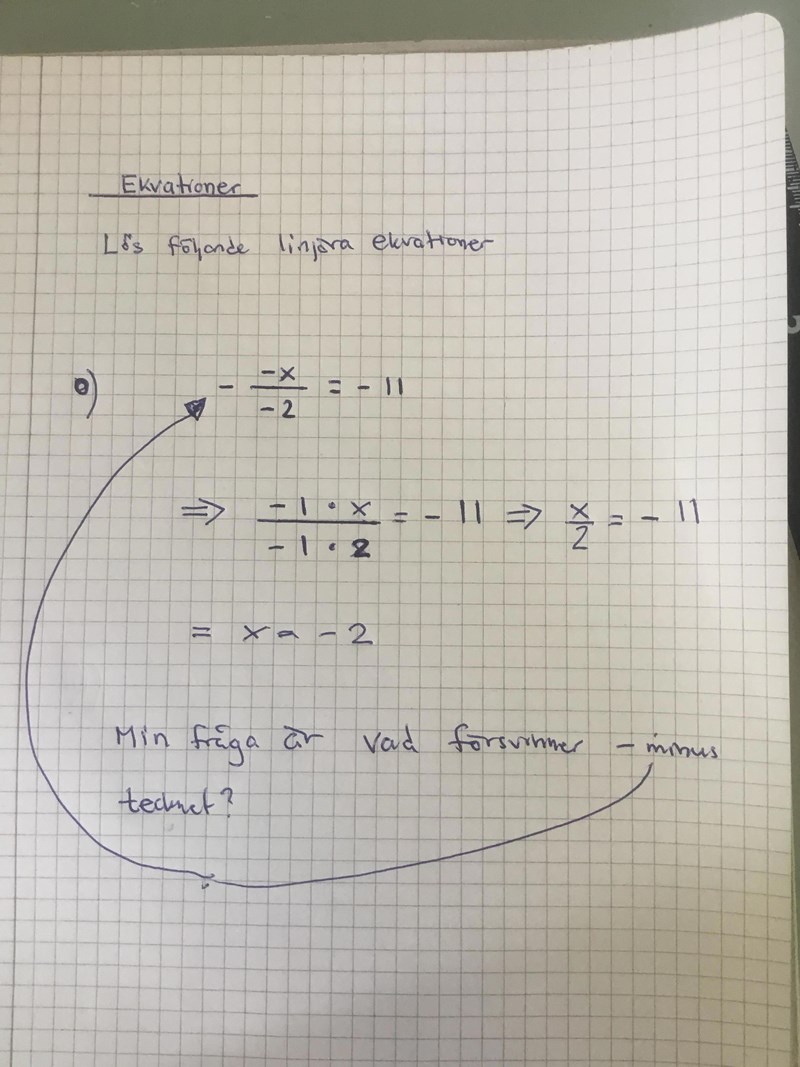 Ekvationer
Lös följande linjära ekvationer
0) - -x/-2 = - 11
=> -1 · x / -1 · 2 = - 11 => x/2 = - 11
= x = - 2
Min fråga är vad försvinner - minus
tecknet?